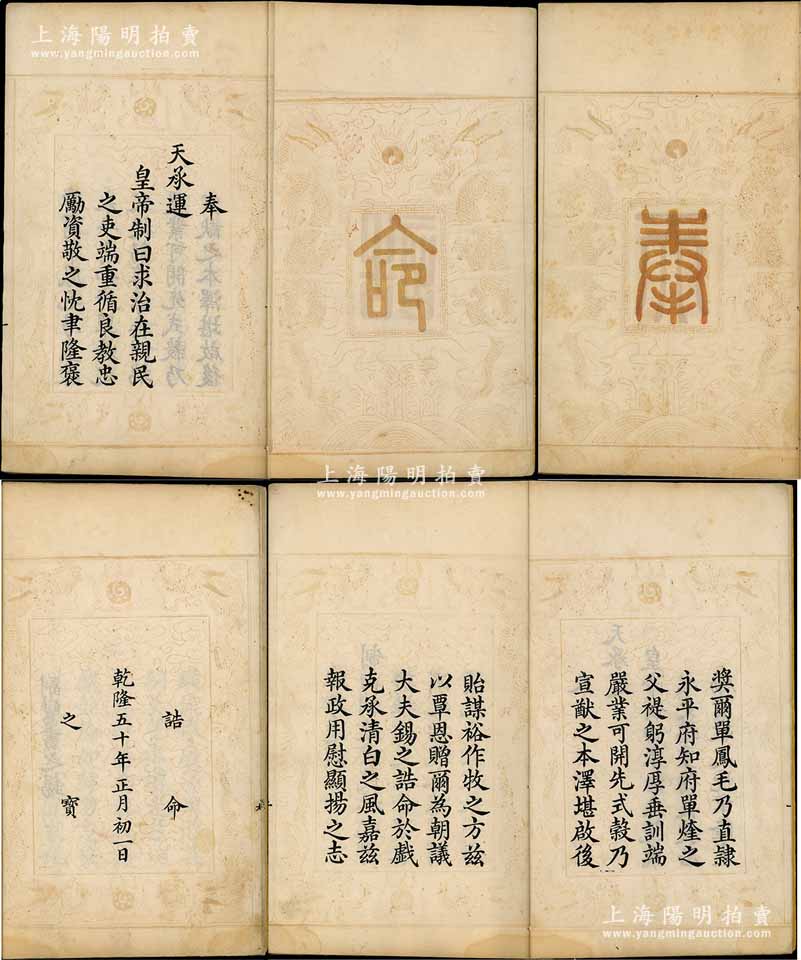 奉
命
奉
天承運
皇帝制曰求治在親民
之吏端重循良教忠
勵資敬之忱聿隆褒
奬爾單鳳毛乃直隸
永平府知府單煃之
父禔躬淳厚垂訓端
嚴業可開先式穀乃
宣猷之本澤堪啟後
貽謀裕作牧之方茲
以覃恩贈爾為朝議
大夫錫之誥命於戲
克承清白之風嘉茲
報政用慰顯揚之志
誥命
乾隆五十年正月初一日
之寶
上海陽明拍賣
www.yangmingauction.com
上海陽明拍賣
www.yangmingauction.com
上海陽明拍賣
www.yangmingauction.com